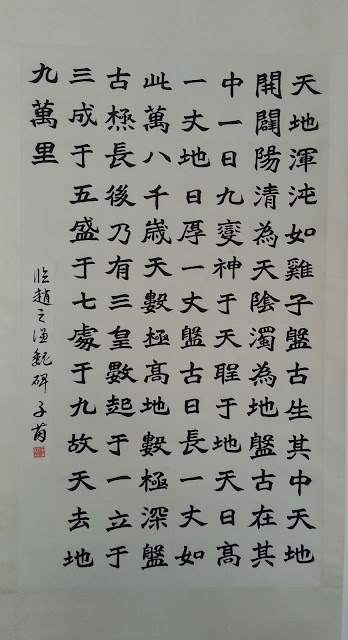 天地渾沌如雞子盤古生其中天地
開闢陽清為天陰濁為地盤古在其
中一日九變神于天聖于地天日高
一丈地日厚一丈盤古日長一丈如
此萬八千歲天數極高地數極深盤
古極長後乃有三皇數起于一立于
三成于五盛于七處于九故天去地
九萬里
临趙之謙魏碑 子